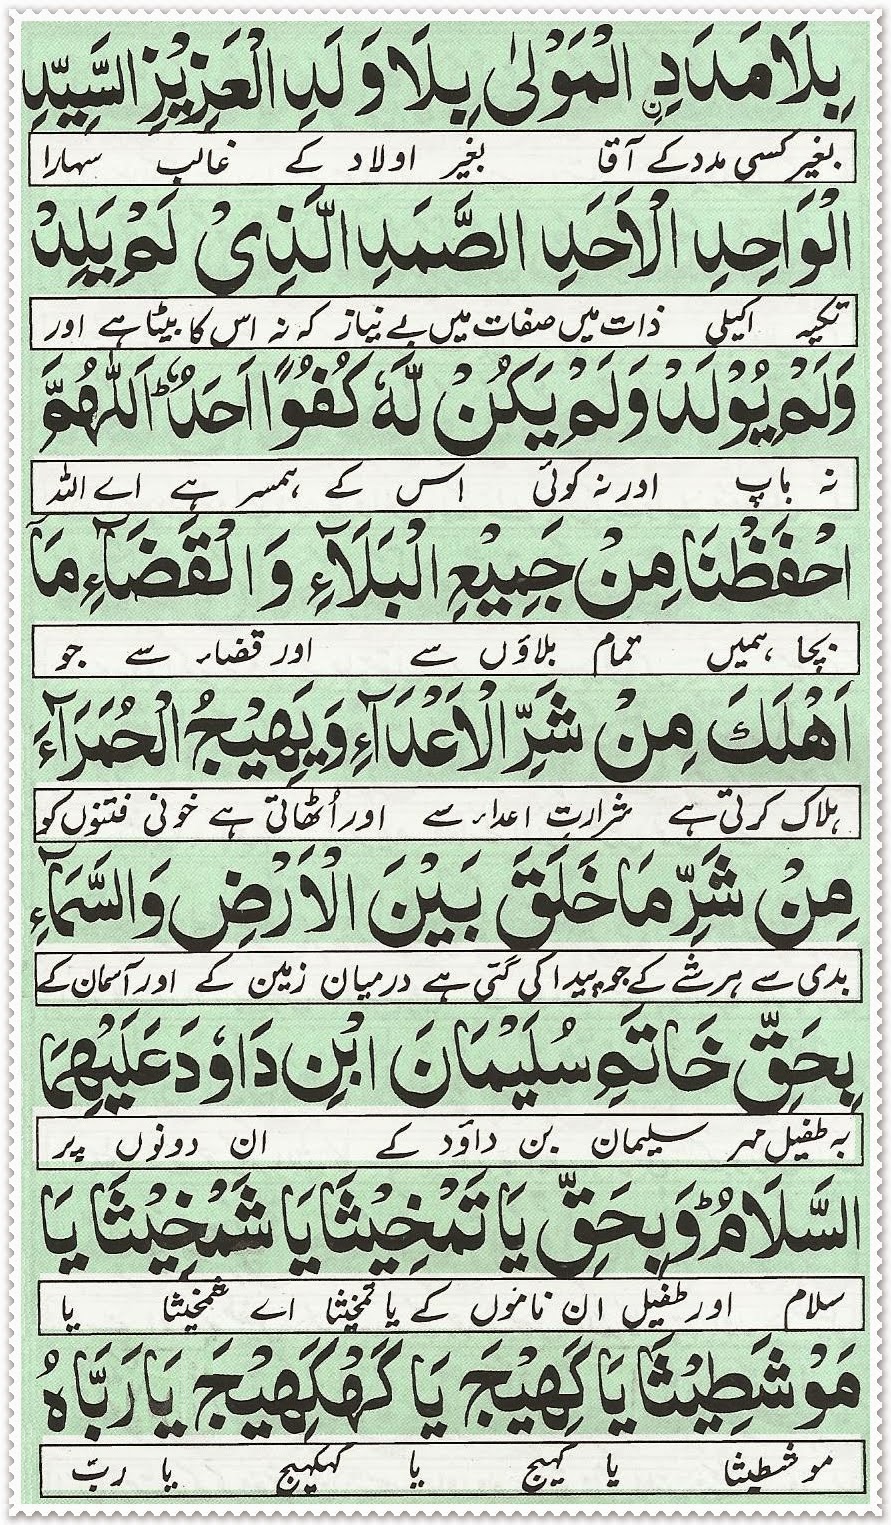 بِلَا مَدَدِ نِ الْمَوْلٰى بِلَا وَلَدِ الْعَزِيْزِ السَّيِّدِ
بغیر کسی مدد کے آقا بغیر اولاد کے غالب سہارا
الْوَاحِدِ الْاَحَدِ الصَّمَدِ الَّذِىْ لَمْ يَلِدْ
تکیہ اکیلی ذات میں صفات میں بے نیاز کہ نہ اس کا بیٹا ہے اور
وَلَمْ يُوْلَدْ وَلَمْ يَكُنْ لَّهٗ كُفُوًا اَحَدٌ ؕ اَللّٰهُمَّ
نہ باپ اور نہ کوئی اس کے ہمسر ہے اے اللہ
احْفَظْنَا مِنْ جَمِيْعِ الْبَلَآءِ وَ الْقَضَآءِ مَآ
بچا ہمیں تمام بلاؤں سے اور قضاء سے جو
اَهْلَكَ مِنْ شَرِّ الْاَعْدَآءِ وَيَهِيْجُ الْحُمَرَآءَ
ہلاک کرتی ہے شرارتِ اعداء سے اور اُٹھاتی ہے خونی فتنوں کو
مِنْ شَرِّ مَا خَلَقَ بَيْنَ الْاَرْضِ وَالسَّمَآءِ
بدی سے ہر شے کے جو پیدا کی گئی ہے درمیان زمین کے اور آسمان کے
بِحَقِّ خَاتَمِ سُلَيْمَانَ ابْنِ دَاوٗدَ عَلَيْهِمَا
بہ طفیل مہر سلیمان بن داؤد کے ان دونوں پر
السَّلَامُ ؕ وَبِحَقِّ يَا تَمْخِيْثَا يَا شَمْخِيْثَا يَا
سلام اور طفیل ان ناموں کے یا تمخیثا اے شمخیثا یا
مَوْشَطِيْثَا يَا كَهِيْجَ يَا كَهْكَهِيْجَ يَا رَبَّاهُ
موشطیثا یا کہیج یا کہکہیج یا ربّ